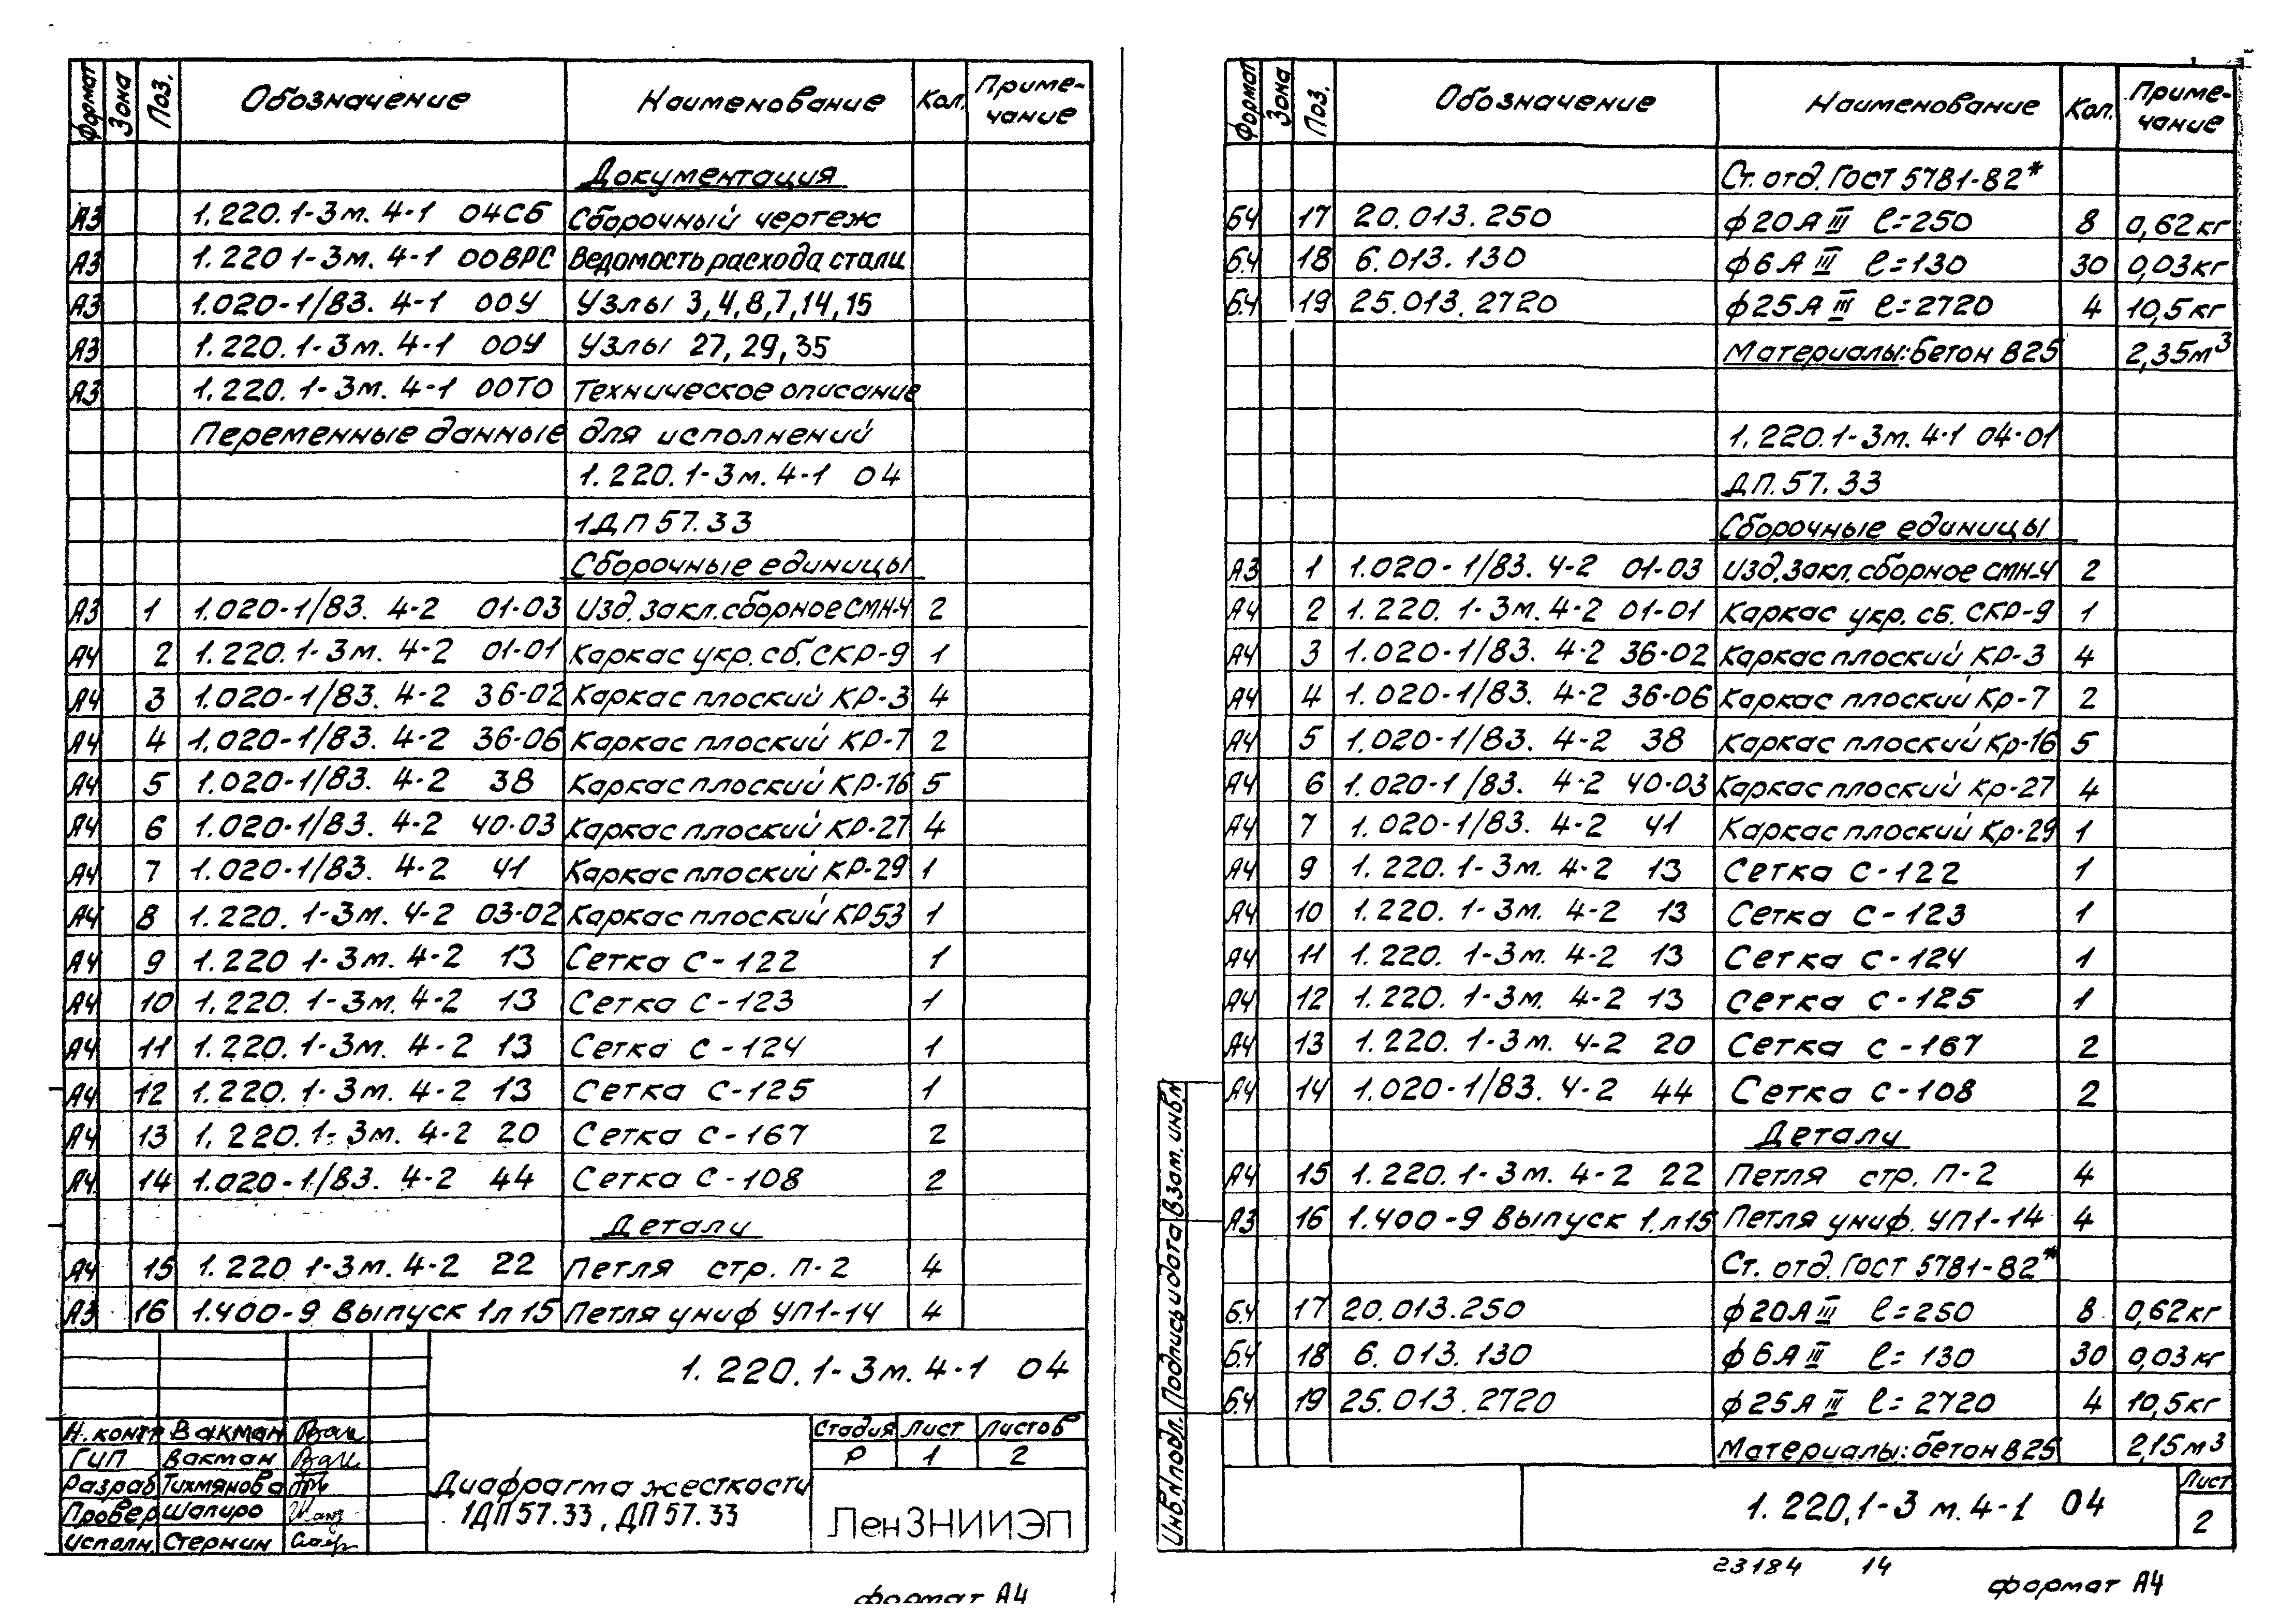 Формат Зона Поз. Обозначение Наименование Кол. Приме-
чание
Документация
А3 1.220.1-3м. 4-1 04СБ Сборочный чертеж
А3 1.220 1-3м. 4-1 00ВРС Ведомость расхода стали
А3 1.020-1/83. 4-1 00У Узлы 3,4,8,7,14,15
А3 1.220.1-3м. 4-1 00У Узлы 27,29,35
А3 1.220.1-3м. 4-1 00ТО Техническое описание
Переменные данные для исполнений
1.220.1-3м.4-1 04
1ДП57.33
Сборочные единицы
А3 1 1.020-1/83. 4-2 01-03 Изд.закл.сборное СМН-4 2
А4 2 1.220.1-3м. 4-2 01-01 Каркас укр.сб.СКР-9 1
А4 3 1.020-1/83. 4-2 36-02 Каркас плоский КР-3 4
А4 4 1.020-1/83. 4-2 36-06 Каркас плоский КР-7 2
А4 5 1.020-1/83. 4-2 38 Каркас плоский КР-16 5
А4 6 1.020-1/83. 4-2 40-03 Каркас плоский КР-27 4
А4 7 1.020-1/83. 4-2 41 Каркас плоский КР-29 1
А4 8 1.220. 1-3м. 4-2 03-02 Каркас плоский КР53 1
А4 9 1.220 1-3м. 4-2 13 Сетка С-122 1
А4 10 1.220. 1-3м. 4-2 13 Сетка С-123 1
А4 11 1.220. 1-3м. 4-2 13 Сетка С-124 1
А4 12 1.220. 1-3м. 4-2 13 Сетка С-125 1
А4 13 1.220.1-3м. 4-2 20 Сетка С-167 2
А4 14 1.020-1/83. 4-2 44 Сетка С-108 2
Детали
А4 15 1.220 1-3м. 4-2 22 Петля стр. П-2 4
А3 16 1.400-9 Выпуск 1л15 Петля униф УП1-14 4
1.220.1-3м.4-1 04
Н.контр Вакман
ГИП Вакман
Разраб Тихмянова
Провер Шапиро
Исполн. Стернин
Диафрагма жесткости
1ДП57.33, ДП57.33
Стадия Лист Листов
Р 1 2
ЛенЗНИИЭП
формат А4
Формат Зона Поз. Обозначение Наименование Кол. Приме-
чание
Ст.отд.ГОСТ 5781-82*
БЧ 17 20.013.250 ф20АIII ℓ=250 8 0,62кг
Б.Ч 18 6.013.130 ф6АIII ℓ=130 30 0,03кг
Б.Ч 19 25.013.2720 ф25АIII ℓ=2720 4 10,5кг
Материалы:бетон В25 2,35м³
1.220.1-3м.4-1 04-01
ДП.57.33
Сборочные единицы
А3 1 1.020-1/83. 4-2 01-03 Изд.закл.сборное СМН-4 2
А4 2 1.220. 1-3м. 4-2 01-01 Каркас укр. сб. СКР-9 1
А4 3 1.020-1/83. 4-2 36-02 Каркас плоский КР-3 4
А4 4 1.020-1/83. 4-2 36-06 Каркас плоский Кр-7 2
А4 5 1.020-1/83. 4-2 38 Каркас плоский Кр-16 5
А4 6 1.020-1/83. 4-2 40-03 Каркас плоский Кр-27 4
А4 7 1.020-1/83. 4-2 41 Каркас плоский Кр-29 1
А4 9 1.220. 1-3м. 4-2 13 Сетка С-122 1
А4 10 1.220. 1-3м. 4-2 13 Сетка С-123 1
А4 11 1.220. 1-3м. 4-2 13 Сетка С-124 1
А4 12 1.220. 1-3м. 4-2 13 Сетка С-125 1
А4 13 1.220. 1-3м. 4-2 20 Сетка С-167 2
А4 14 1.020-1/83. 4-2 44 Сетка С-108 2
Детали
А4 15 1.220.1-3м. 4-2 22 Петля стр. П-2 4
А3 16 1.400-9 Выпуск 1.л15 Петля униф. УП1-14 4
Ст. отд.ГОСТ 5781-82*
Б.Ч 17 20.013.250 ф20АIII ℓ=250 8 0,62кг
Б.Ч 18 6.013.130 ф6АIII ℓ=130 30 0,03кг
Б.Ч 19 25.013.2720 ф25АIII ℓ=2720 4 10,5кг
Материалы:бетон В25 2,15м³
Инв.№подл. Подпись и дата Взам.инв.№
1.220,1-3 м.4-1 04
Лист
2
23184 14
формат А4